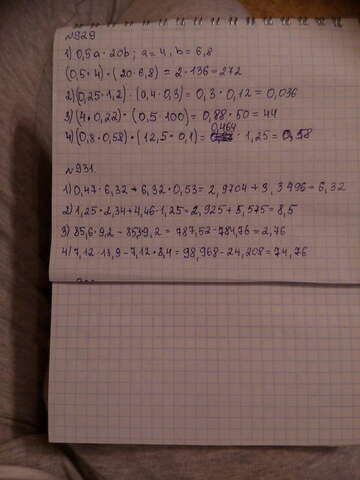 №929
1) 0,5a · 20b ; a = 4, b = 6,8
(0,5 · 4) · (20 · 6,8) = 2 · 136 = 272
2) (0,25 · 1,2) · (0,4 · 0,3) = 0,3 · 0,12 = 0,036
3) (4 · 0,22) · (0,5 · 100) = 0,88 · 50 = 44
4) (0,8 · 0,58) · (12,5 · 0,1) = 0,464 · 1,25 = 0,58
№931.
1) 0,47 · 6,32 + 6,32 · 0,53 = 2,9704 + 3,3496 = 6,32
2) 1,25 · 2,34 + 4,46 · 1,25 = 2,925 + 5,575 = 8,5
3) 85,6 · 9,2 – 85,39,2 = 787,52 – 784,76 = 2,76
4) 7,12 · 13,9 – 7,12 · 3,4 = 98,968 – 24,208 = 74,76